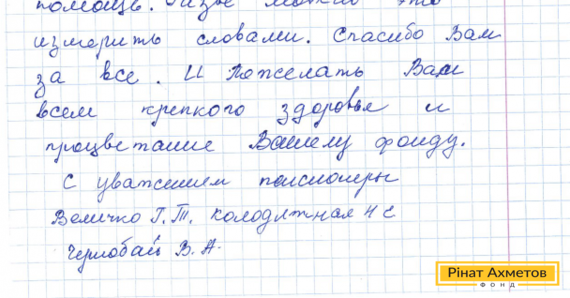 помощь. Разве можно это
измерить словами. Спасибо Вам
за все. И пожелать Вам
всем крепкого здоровья и
процветание Вашему фонду.
С уважением пенсионеры
Величко Г.Т. Колодяжная Н Е
Чернобай В.А.
Рінат Ахметов
ФОНД